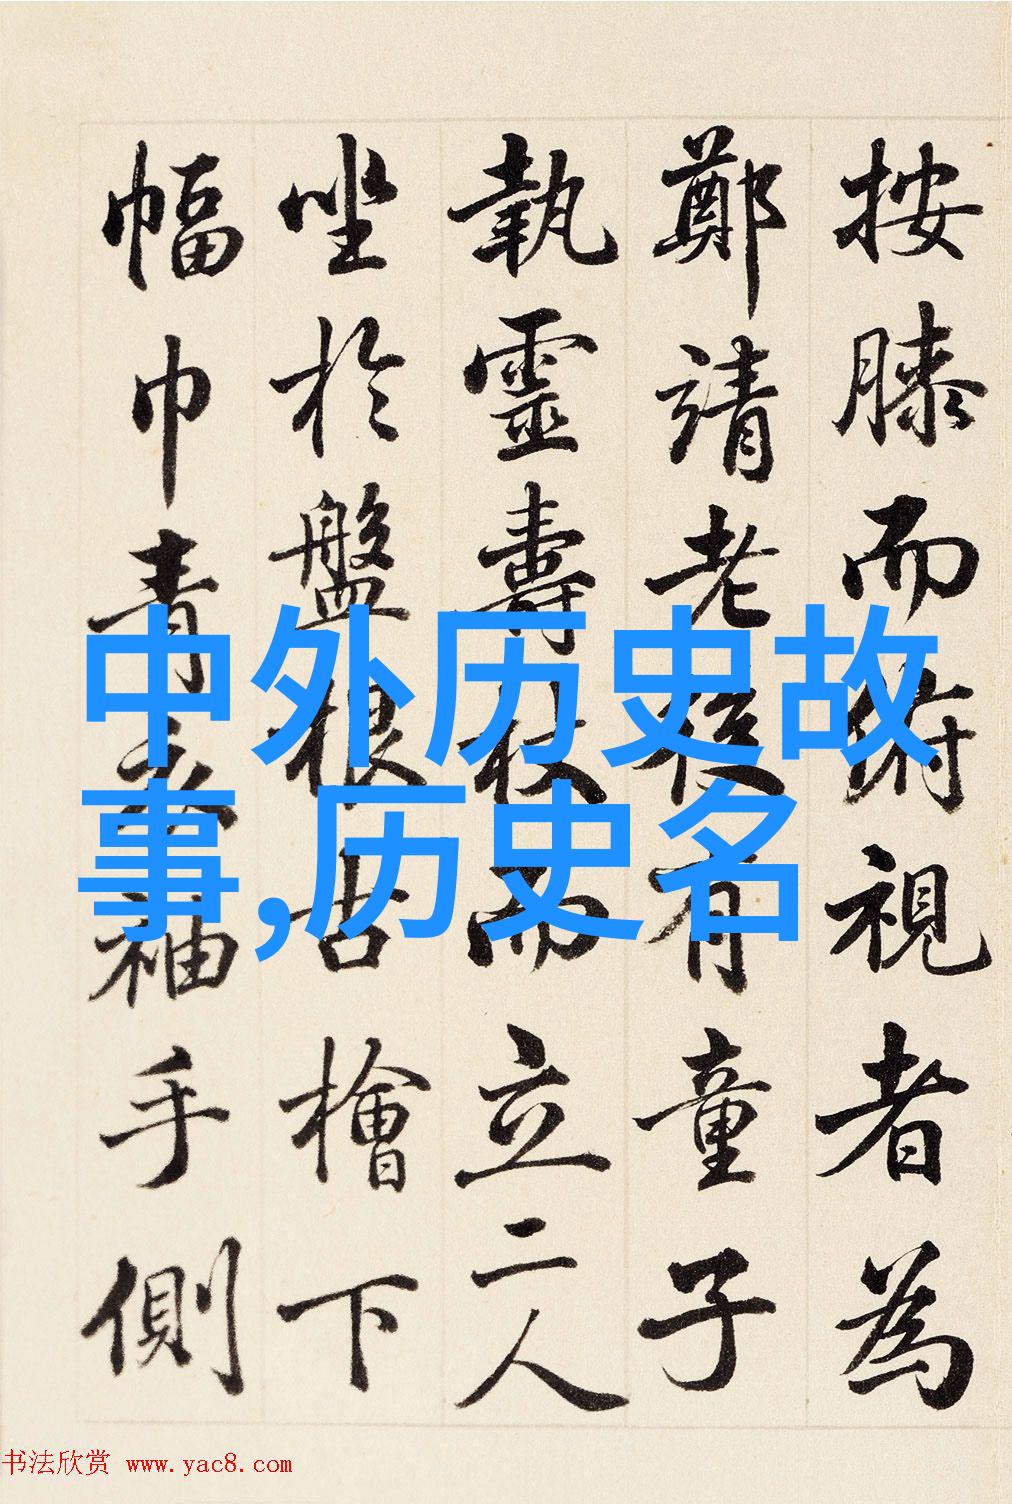 按膝而俯視者為
鄭靖老後有童子
執靈壽杖而立二人
坐於盤根古檜下
幅巾青衣袖手側
中外历史故
事,历史名
书法欣赏 www.yac8.com